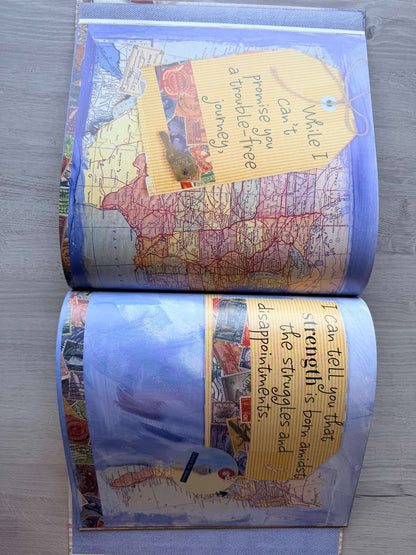 While I
can't
promise you
a trouble-free
journey,
I can tell you that
strength is born amidst
the struggles and
disappointments.